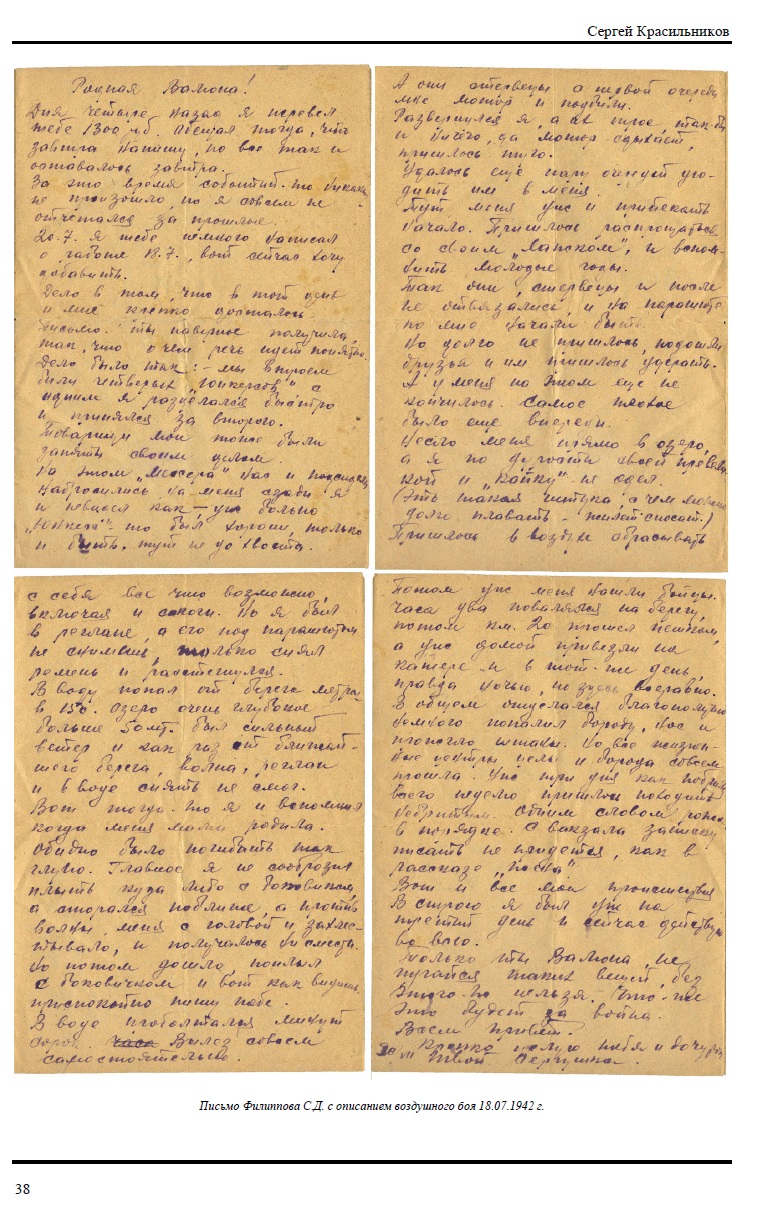 Сергей Красильников
Родная Валюша!
Дня четыре назад я перевел
тебе 1300 руб. Обещал тогда, что
завтра напишу, но все так и
оставалось завтра.
За это время событий-то никаких
не произошло, но я совсем не
отчитался за прошлые.
20.7. я тебе немного написал
о работе 18.7., вот сейчас хочу
добавить.
Дело в том, что в тот день
и мне крепко досталось
Письмо ты наверное получила,
так, что о чем речь идет понятно.
Дело было так:- мы втроем
били четверых "юнкерсов" с
одним я разделался быстро
и принялся за второго.
Товарищи мои тоже были
заняты своим делом.
На этом "Мессера" нас и подсидели
Набросились на меня сзади я
и увлекся как-то уж больно
"Юнкерс"-то был хорош, только
и бить. тут не до хвоста.
А они стервецы в первой очереди
мне мотор и подбили.
Развернулся я а их трое так-бы
и ничего, да мотор сдыхает,
пришлось туго.
Удалось еще пару очередей уго-
дить им в меня.
Тут меня уже и припекать
начало. Пришлось распрощаться
со своим "Лапском", и вспом-
нить молодые годы.
Так они, стервецы и после
не отвязались, и на парашюте
по мне начали бить.
Но долго не пришлось, подошли
друзья и им пришлось удирать.
А у меня на этом еще не
кончилось. Самое плохое
было еще впереди.
Несло меня прямо в озеро,
а я по дурости своей проверкой
и "Капку" не одел.
(Эта такая штука, с чем можно
долго плавать - жилет спасат.)
Пришлось в воздухе сбрасывать
с себя все что возможно,
включая и сапоги. Но я был
в реглане, а его под парашютом
не снимешь, только снял
ремень и расстегнулся.
В воду попал от берега метрах
в 150. Озеро очень глубокое
больше 50 мт. был сильный
ветер и как раз от ближай-
шего берега, волна, реглан
и в воде снять не смог.
Вот тогда-то я и вспомнил
когда меня мама родила.
Обидно было погибать так
глупо. Главное я не сообразил
плыть куда либо с боковиком,
а старался поближе, а против
волны меня с головой и захлес-
тывало, и получалось на месте.
Но потом дошло поплыл
с боковичком и вот как видишь
приспокойно пишу тебе.
В воде проболтался минут
сорок. Вылез совсем
самостоятельно.
Потом уже меня нашли бойцы.
часа два повалялся на берегу,
потом км. 20 прошел пешком,
а уже домой привезли на
катере и в тот-же день,
правда ночью, но здесь всеравно.
В общем отделался благополучно
немного попалил бороду, нос и
прожгло штаны. Но все жизнен-
ные центры целы и борода совсем
прошла. Уже три дня как побрился
всего неделю пришлось походить
небритым. Одним словом,
в порядке. С вокзала записку
писать не придется, как в
рассказе
Вот и все мои происшествия
В строю я был уже на
третий день и сейчас действую
во всю.
Только ты Валюша не
пугайся таких вещей, без
этого-то нельзя. Что-же
это будет за война.
Всем привет.
Крепко целую тебя и дочурку
30/VII Твой Сергушка.
Письмо Филиппова С.Д. с описанием воздушного боя 18.07.1942 г.
38